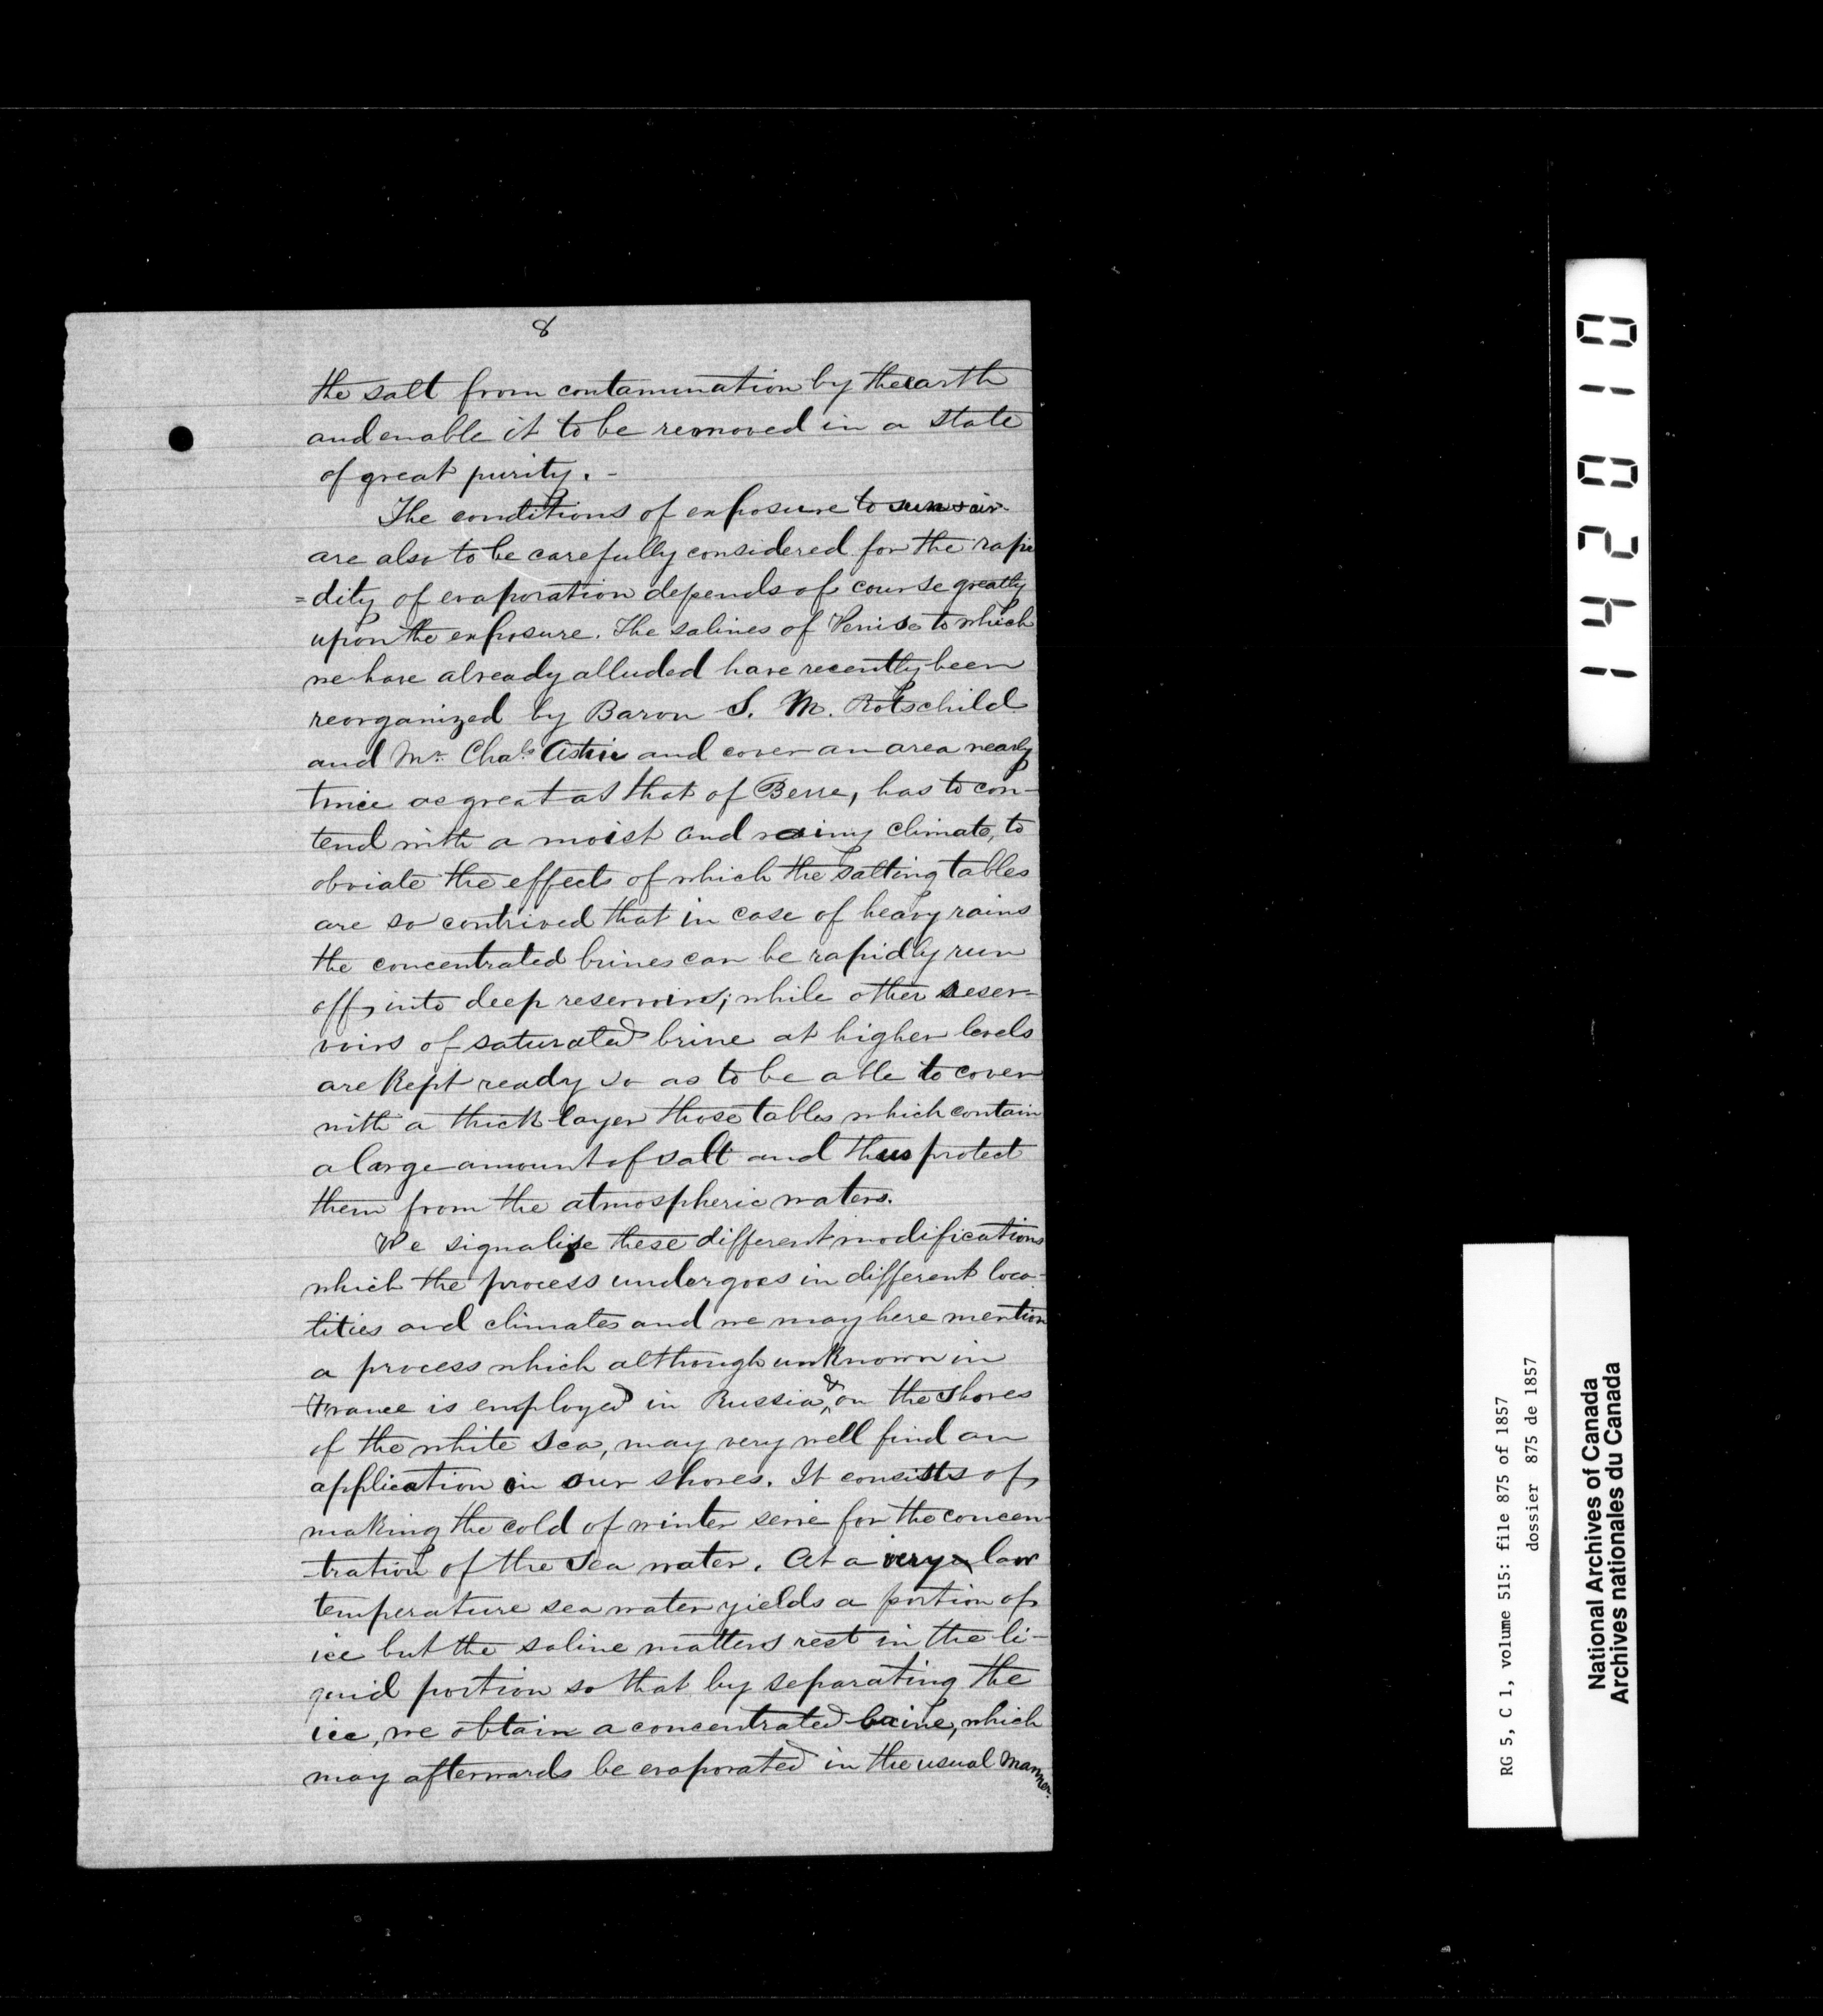 8
the salt from contamination by the earth
and enable it to be removed in a state
of great purity. -
The conditions of exposure to sun & air
are also to be carefully considered for the rapi
=dity of evaporation depends of course greatly
upon the exposure. The salines of Venise to which
we have already alluded have recently been
reorganized by Baron S. M. Rotschild
and Mr. Chals. Astric and cover an area nearly
twice as great as that of Berre, has to con-
tend with a moist and rainy climate, to
obviate the effects of which the salting tables
are so contrived that in case of heavy rains
the concentrated brines can be rapidly run
off, into deep reservoirs; while other reser-
voirs of saturated brine at higher levels
are kept ready so as to be able to cover
with a thick layer those tables which contain
a large amount of salt and thus protect
them from the atmospheric waters.
We signalise these different modifications
which the process undergoes in different loca-
lities and climates and we may here mention
a process which although unknown in
France is employed in Russia & on the shores
of the white Sea, may very well find an
application on our shores. It consists of
making the cold of winter serve for the concen-
tration of the Sea water. At a very low
temperature sea water yields a portion of
ice but the saline matters rest in the li-
quid portion so that by separating the
ice, we obtain a concentrated brine, which
may afterwards be evaporated in the usual manner.
142010
RG 5, C 1, volume 515: file 875 of 1857
dossier 875 de 1857
National Archives of Canada
Archives nationales du Canada